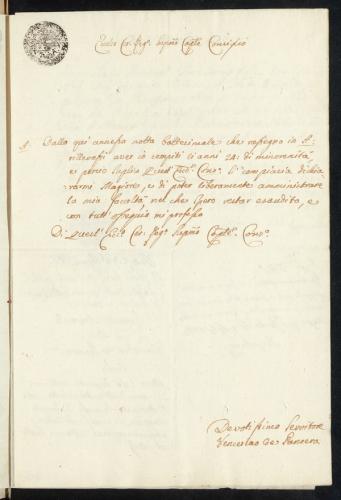 Eccelso Ces. Reg. Supmo Capte. Consiglio
A. Dalla qui annessa notta battesimale che rassegno in A.
rillevasi aver io compiti li anni 24: di minorennità,
e perciò supplico Quest' Ecc. Cons. si compiacia dichia
rarmi Magiore, e di poter liberamente amministrare
la mia facoltà, nel che spero restar esaudito, e
con tutt' ossequio mi professo
Di Quest' Ecc. Ces. Reg. Supmo Capte. Cons.
Devotissimo Servitore
Venceslao de